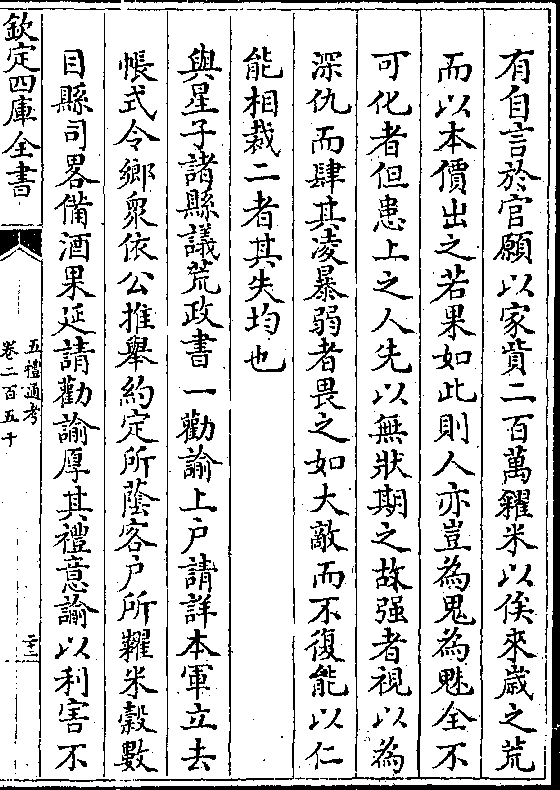 有自言於官願以家貲二百萬糴米以俟來歲之荒
而以本價出之若果如此則人亦豈為鬼為魅全不
可化者但患上之人先以無狀期之故强者視以為
深仇而肆其凌暴弱者畏之如大敵而不復能以仁
能相裁二者其失均也
與星子諸縣議荒政書一勸諭上户請詳本軍立去
帳式令鄉衆依公推舉約定所蔭客户所糶米穀數
目縣司畧備酒果延請勸諭厚其禮意諭以利害不
欽定四庫全書
五禮通考
卷二百五十
二十三